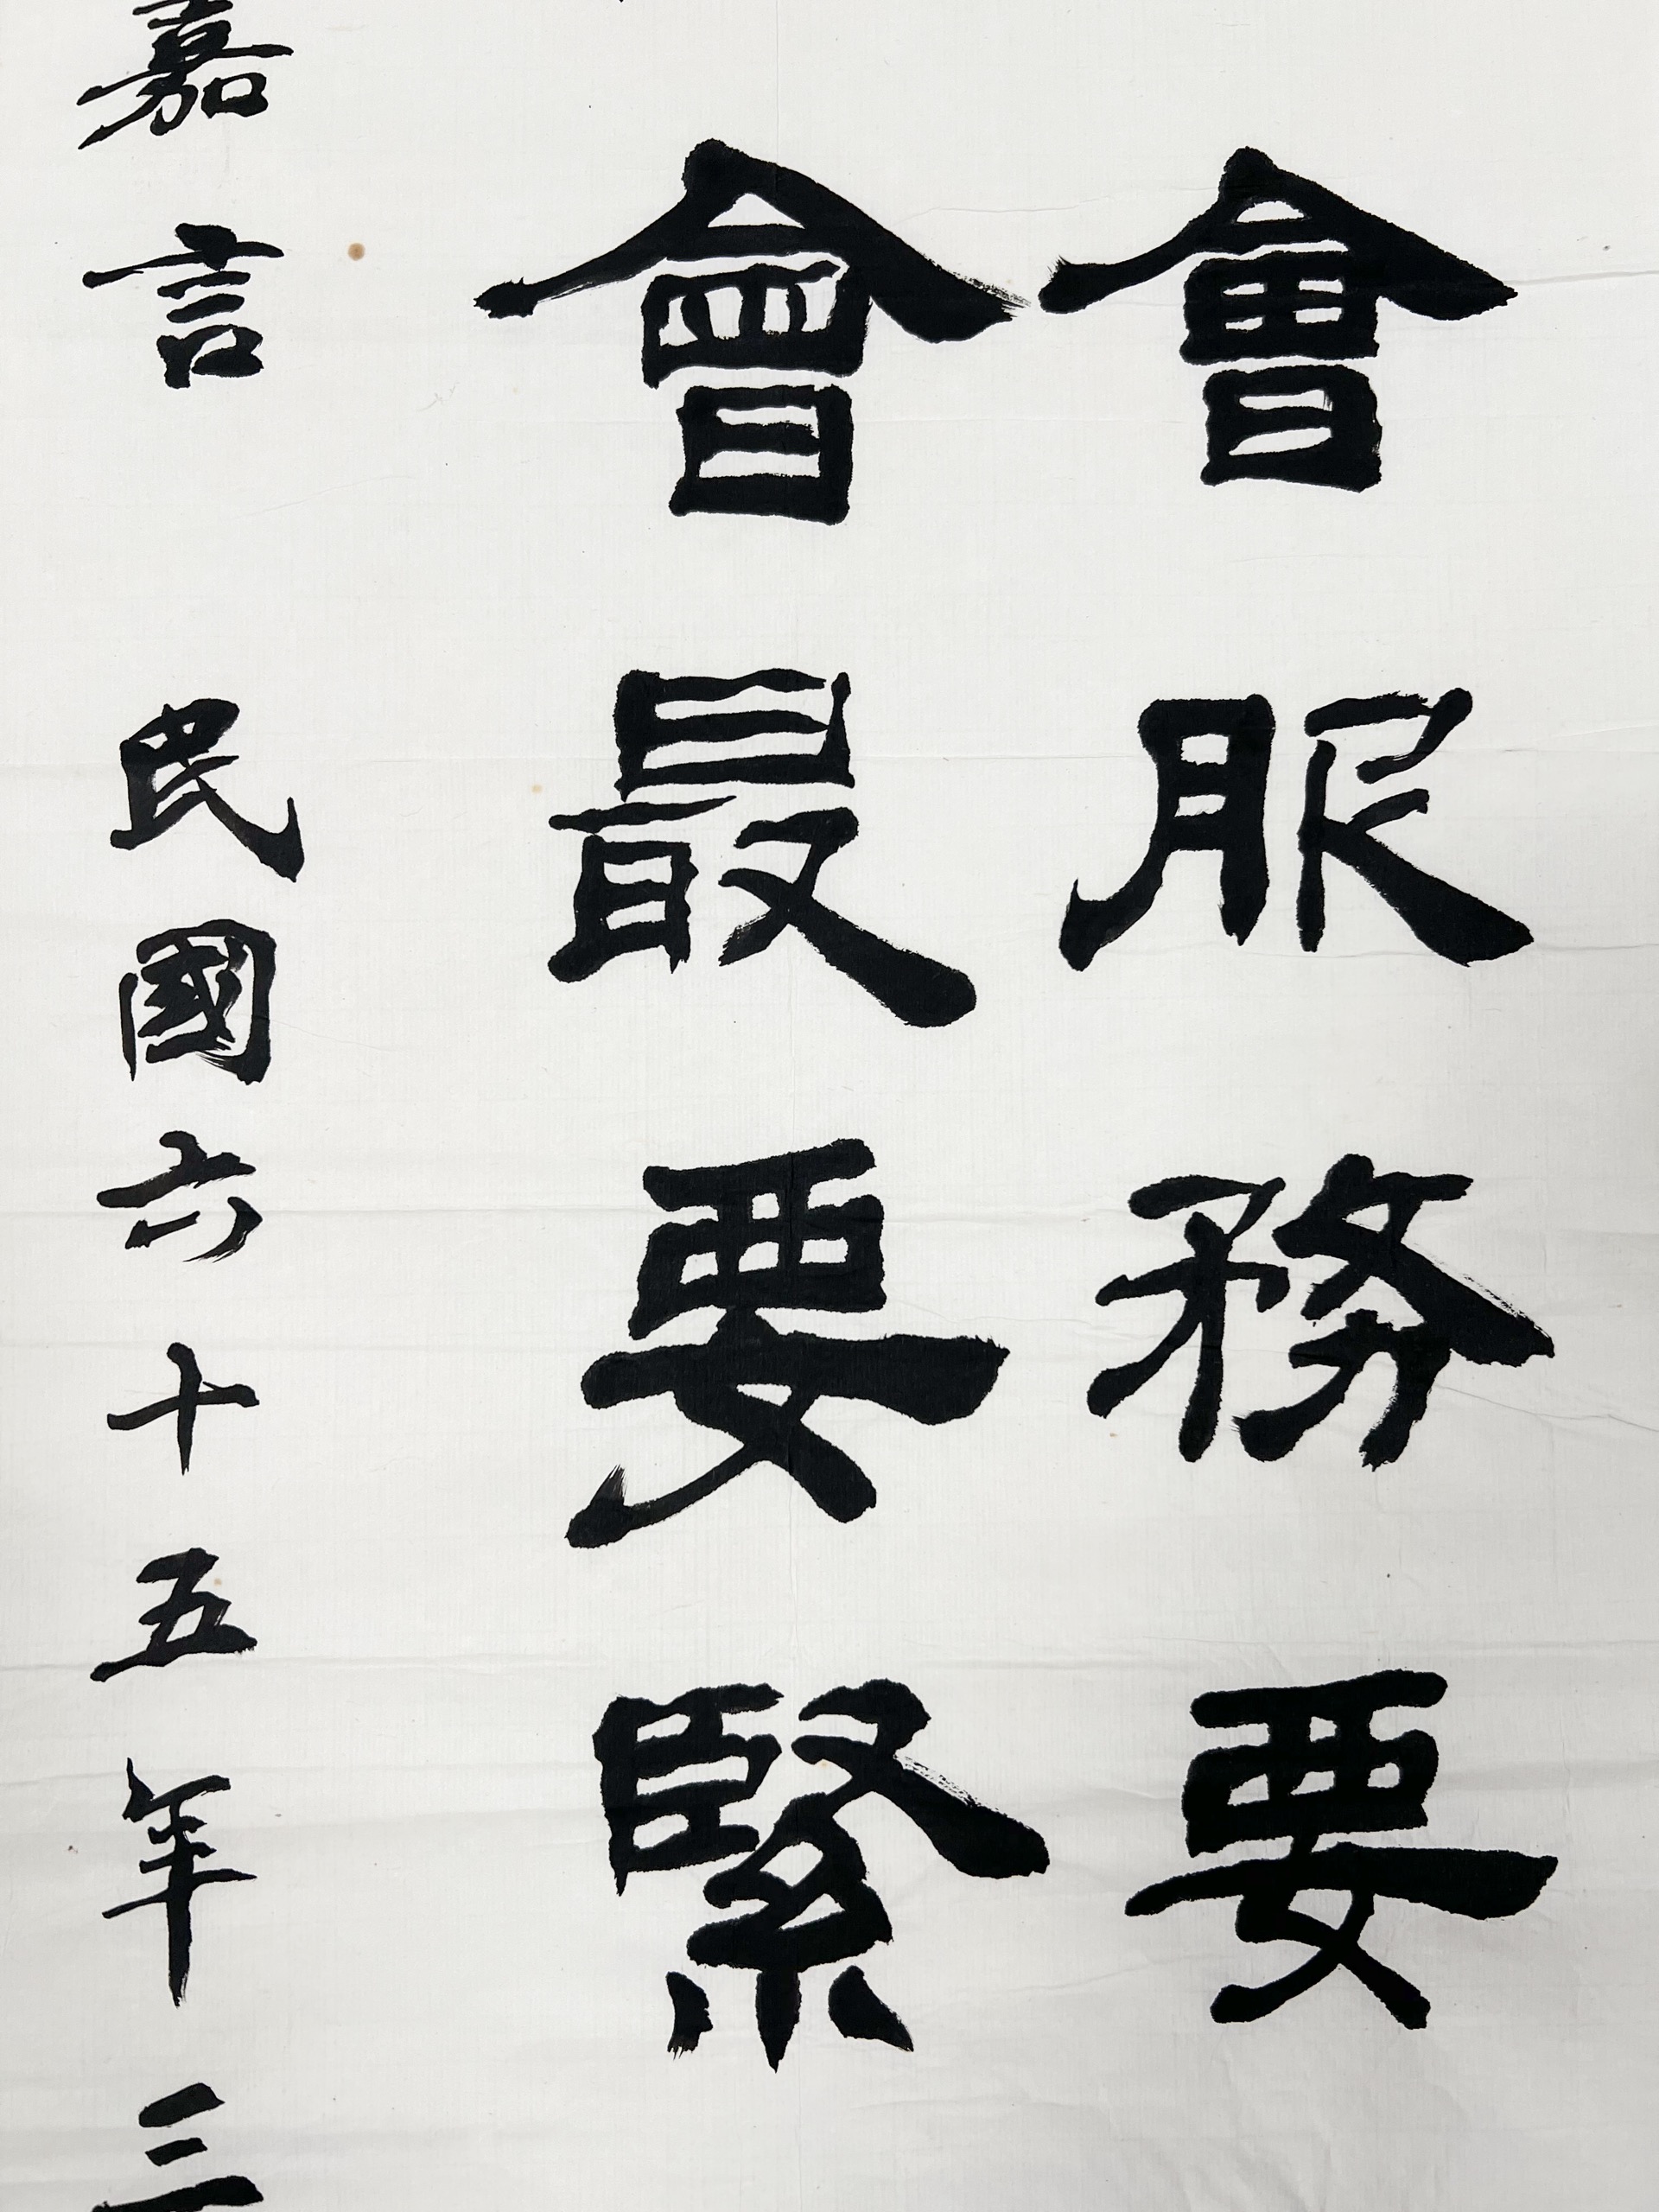 會服務要
會最要緊
嘉言 民國六十五年三